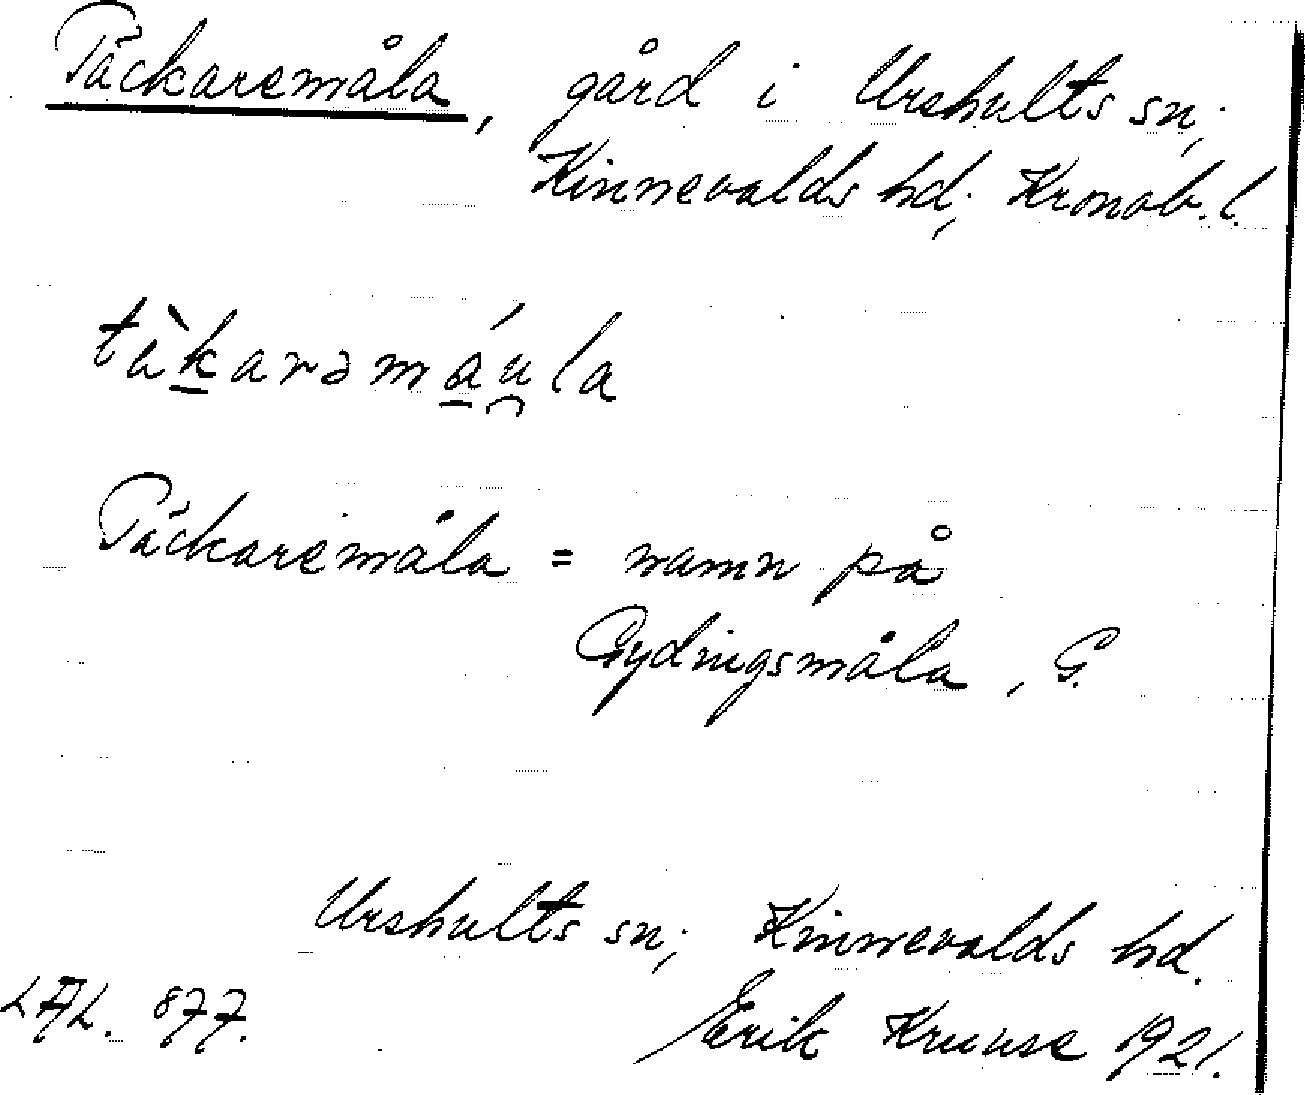 Täckaremåla, gård i Urshults sn;
Kinnevalds hd; Kronob. l.
tàkarəmáu̯la
Täckaremåla = namn på
Gydingsmåla, G.
Urshults sn; Kinnevalds hd.
LAL. 877. Erik Kruuse 1921.